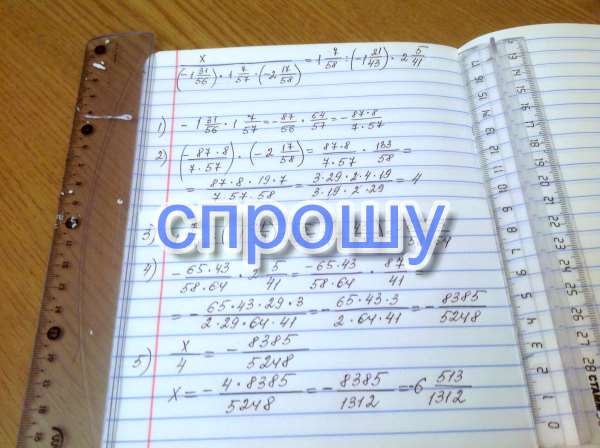 x / ((-1 31/56) · 1 7/57 · (-2 17/58)) = 1 7/58 : (-1 21/43) · 2 5/41
1) -1 31/56 · 1 7/57 = -87/56 · 64/57 = -87·8/7·57
2) (-87·8/7·57) · (-2 17/58) = 87·8/7·57 · 133/58 =
= 87·8·19·7/7·57·58 = 3·29·2·4·19/3·19·2·29 = 4
спрошу
3)
4) -65·43/58·64 · 2 5/41 = -65·43/58·64 · 87/41
= -65·43·29·3/2·29·64·41 = -65·43·3/2·64·41 = -8385/5248
5) x/4 = -8385/5248
x = -4·8385/5248 = -8385/1312 = -6 513/1312